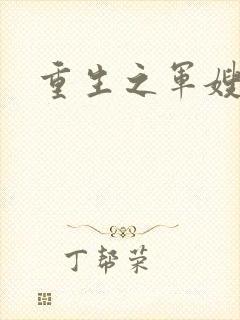 重生之军嫂
丁帮荣